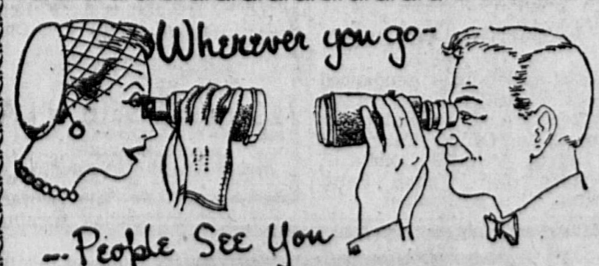 Wherever you go-
--- People See You